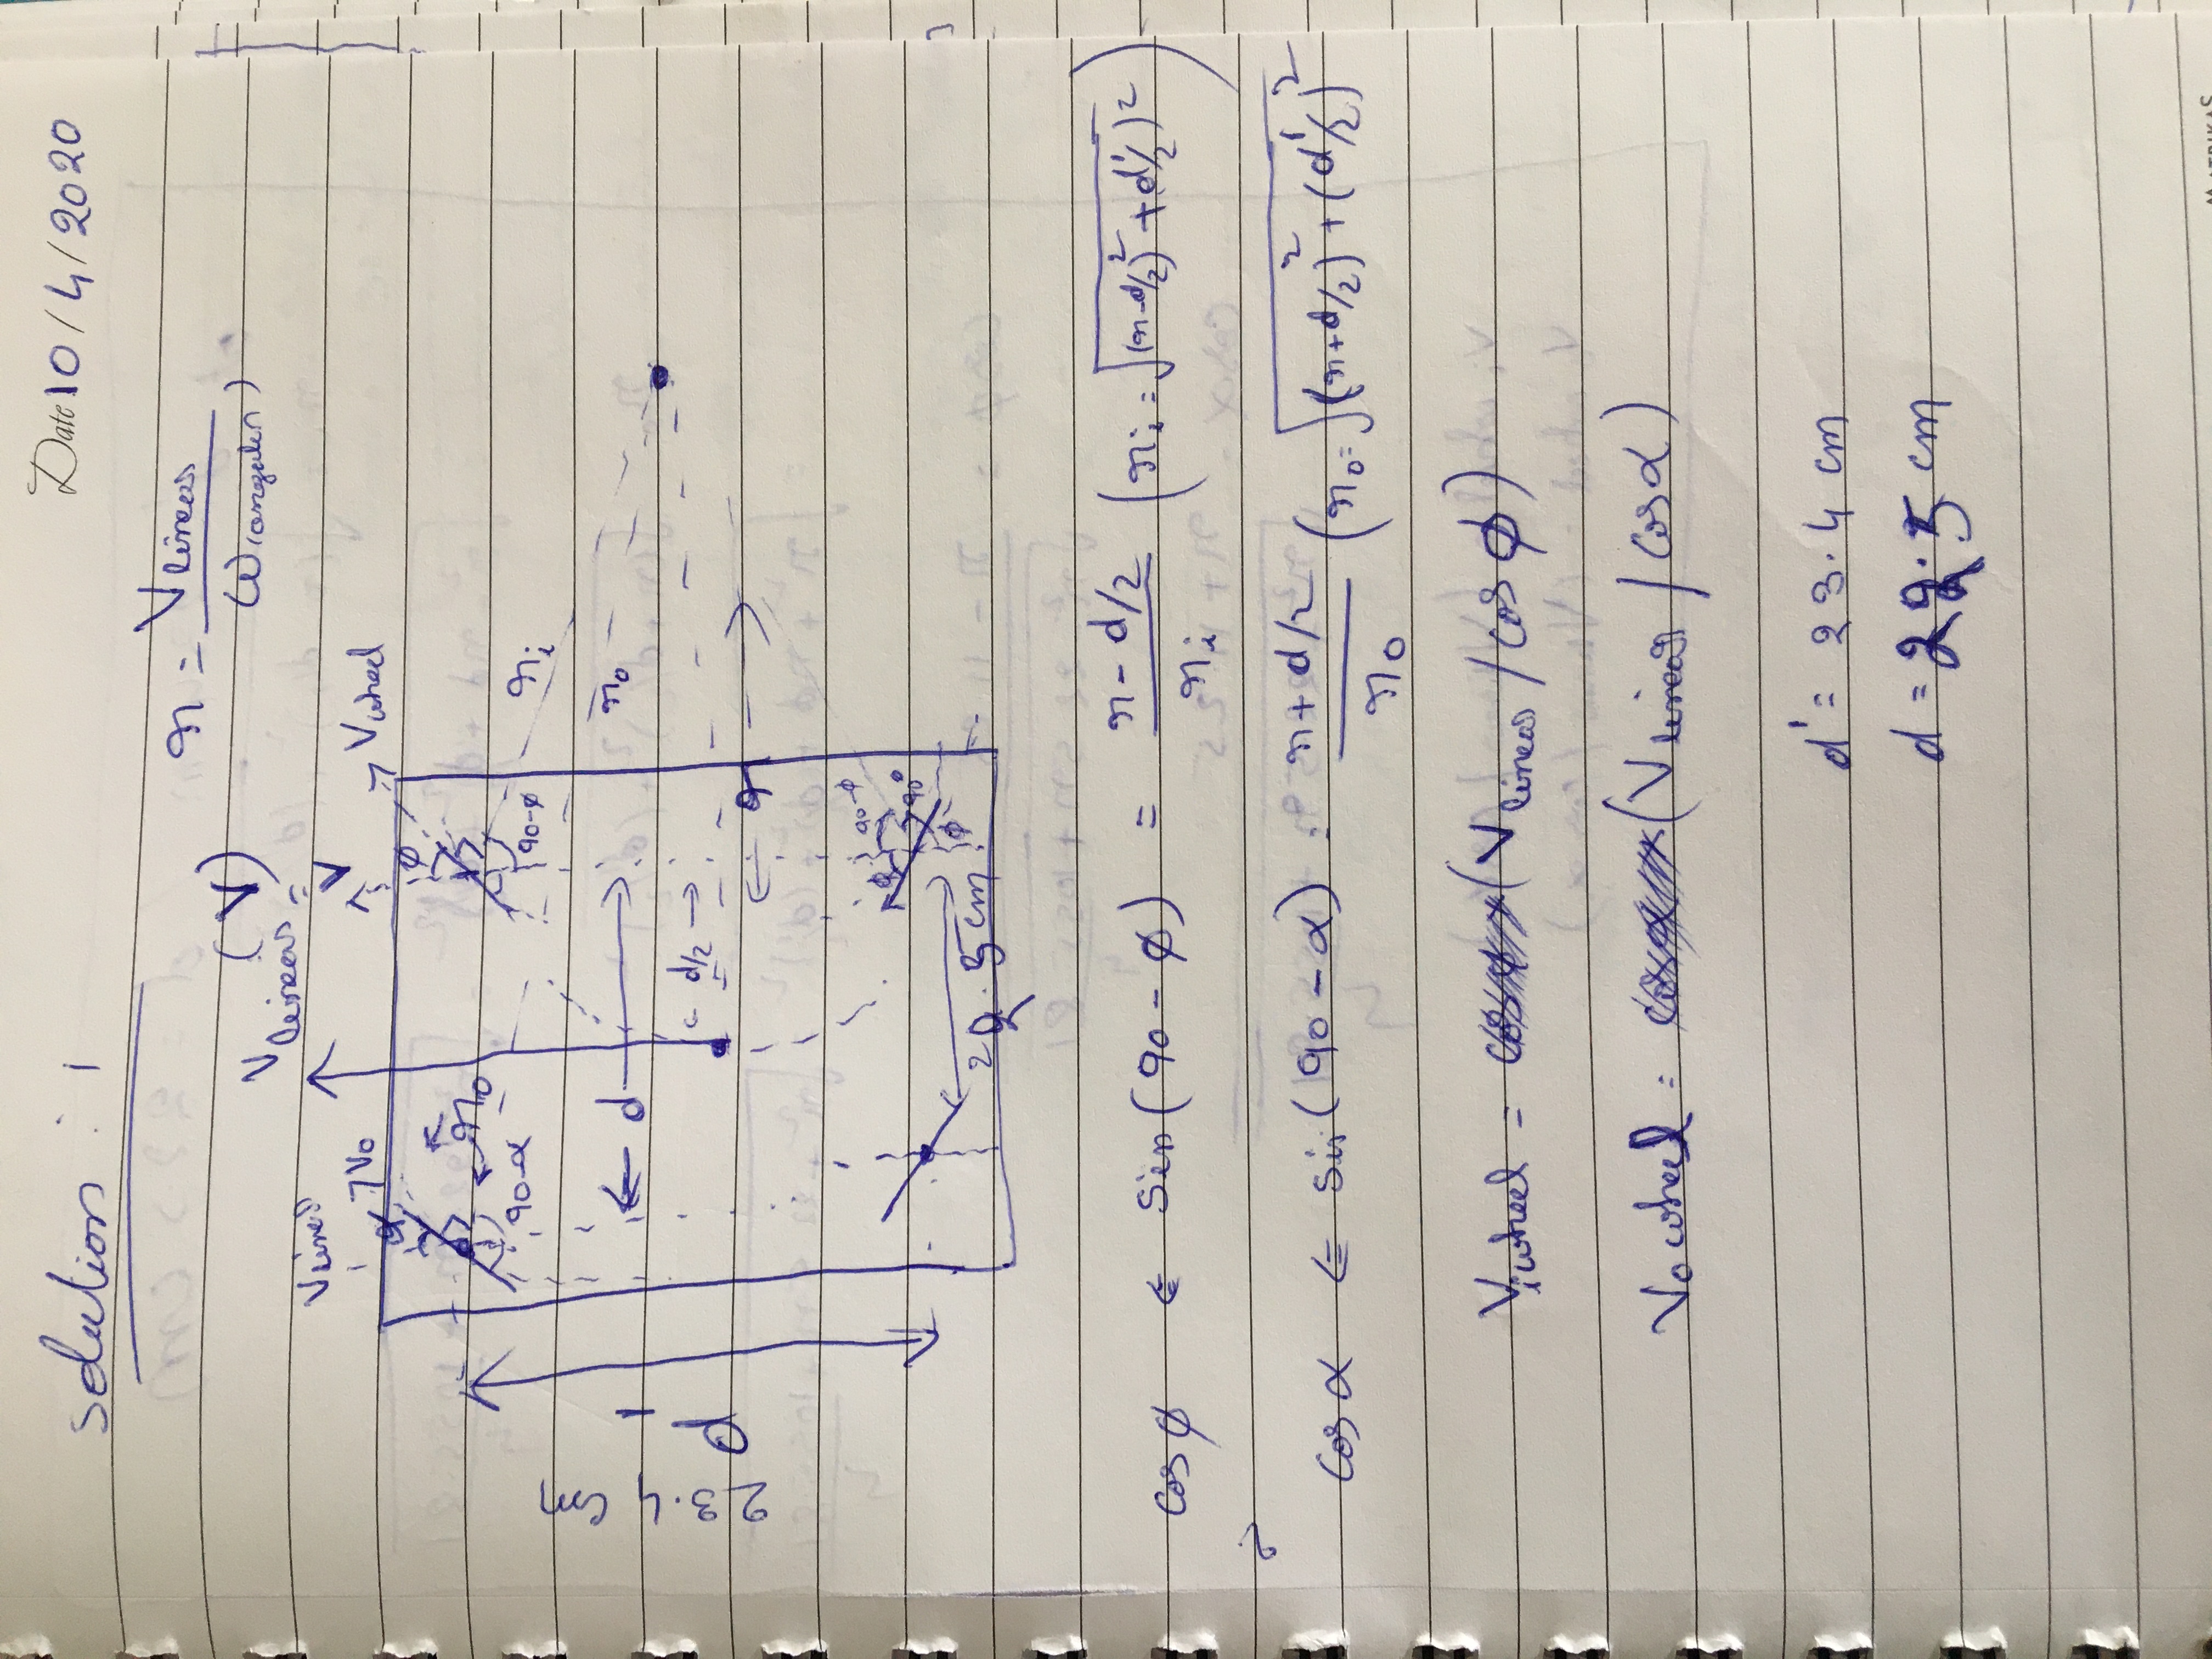 Date 10/4/2020
Solution : 1
r = Vlinear / ω(angular)
(V)
Vlinear = V
Vlinear
α Vo
φ Vwheel
ro
90-α
90-φ
ri
ro
23.4 cm
d'
d
d/2
r
φ 90-φ
90°
φ
22.5 cm
cosφ ⇐ sin(90-φ) = (r-d/2) / ri (ri = √(r-d/2)² + (d'/2)²)
cosα ⇐ sin(90-α) = (r+d/2) / ro (ro = √(r+d/2)² + (d'/2)²
Viwheel = (Vlinear / cosφ)
Vowheel = (Vlinear / cosα)
d' = 23.4 cm
d = 22.5 cm